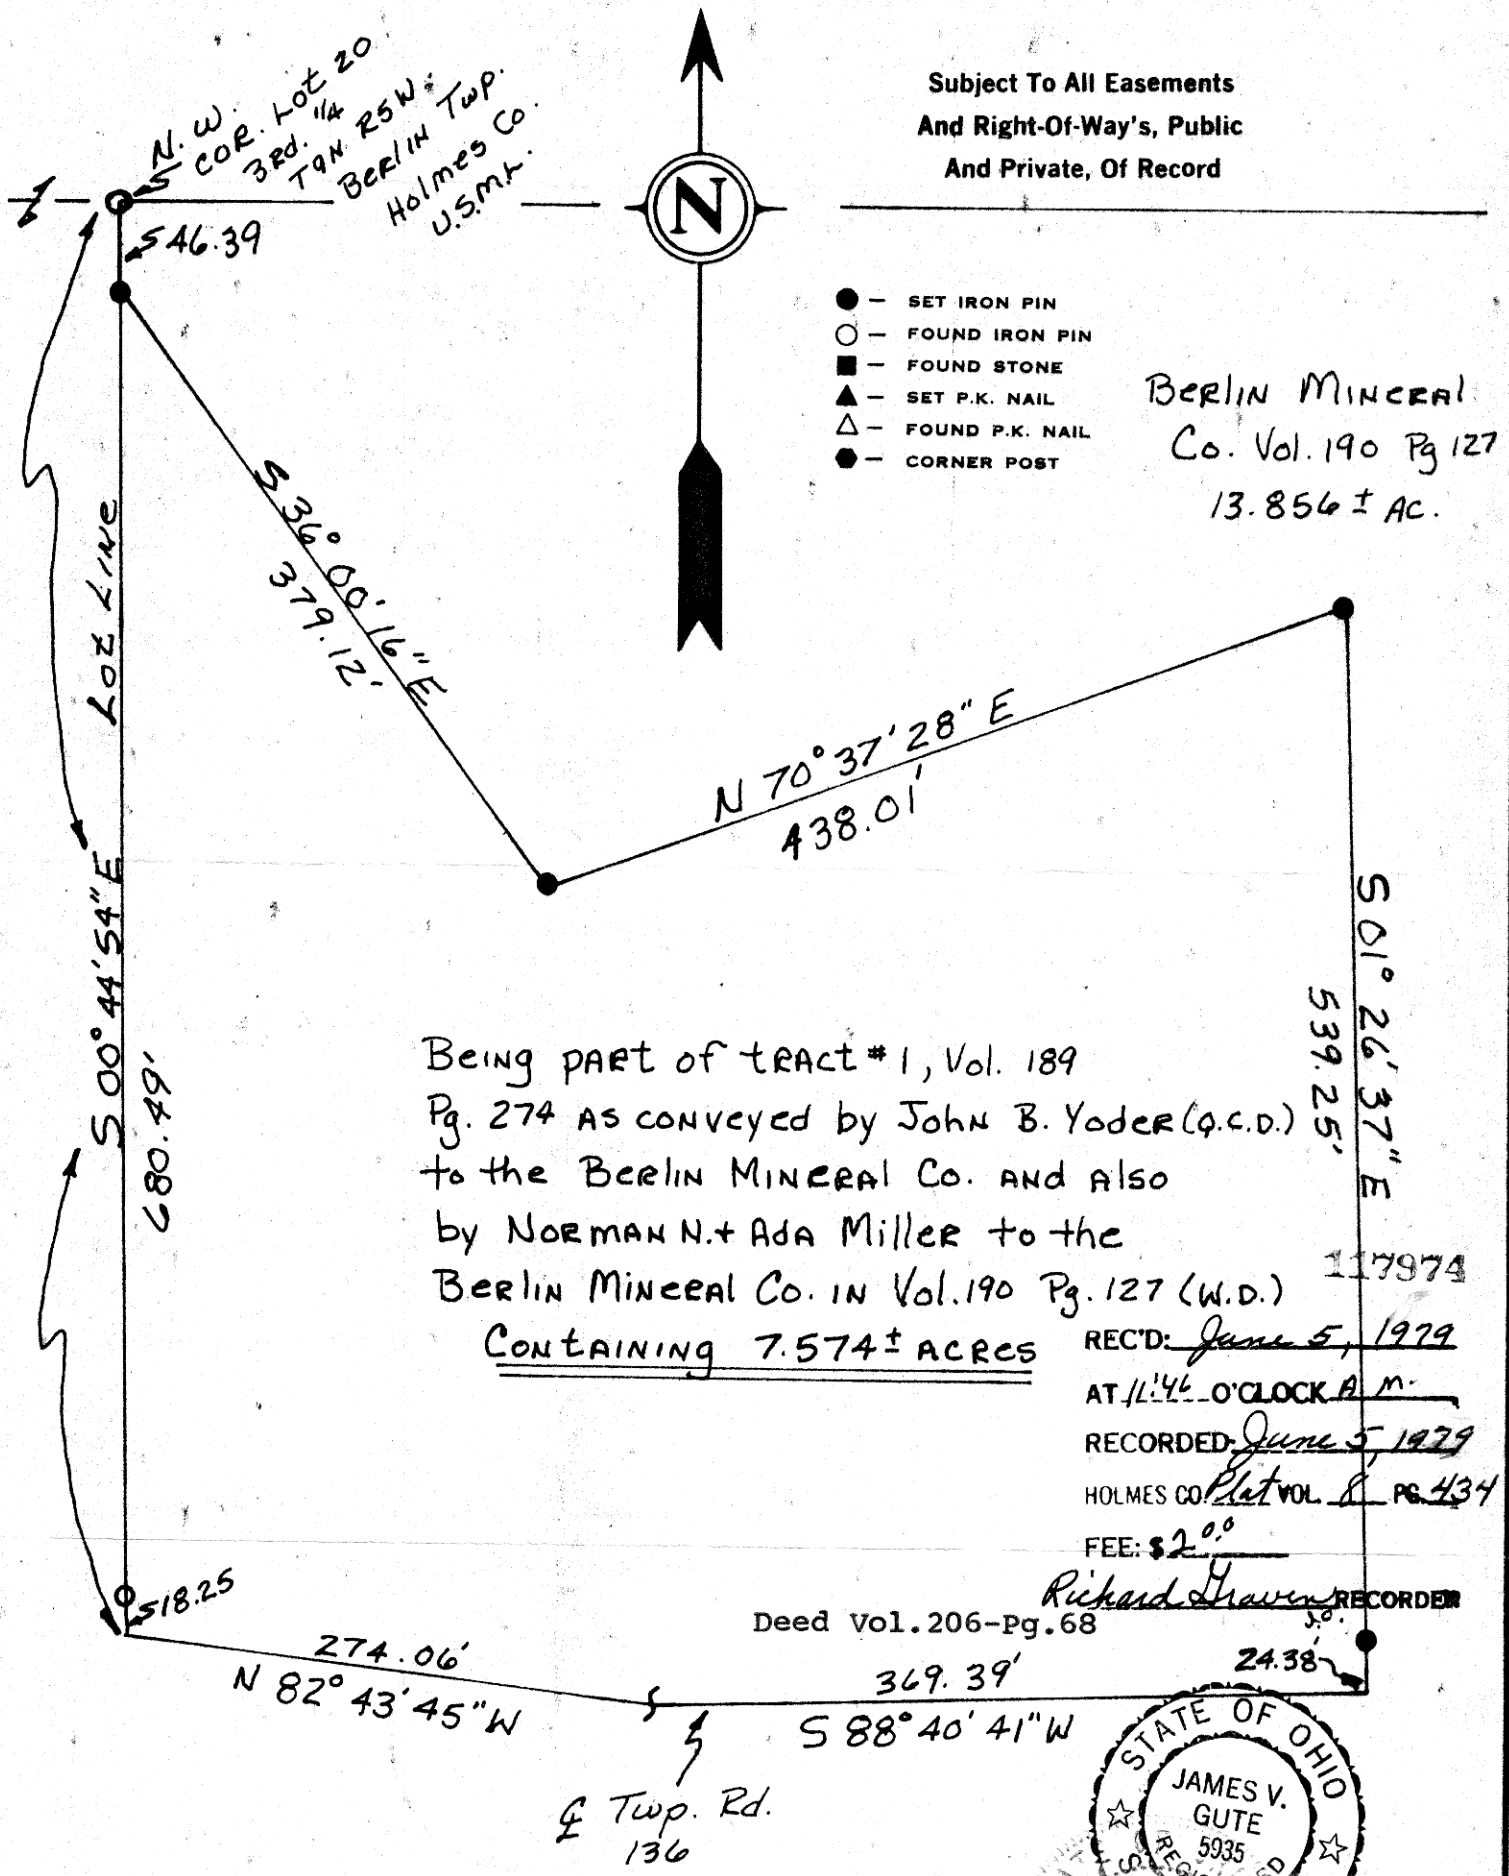 N. W.
COR. Lot 20
3Rd. 1/4
T9N R5W
Berlin Twp.
Holmes Co.
U.S.M.L.
Subject To All Easements
And Right-Of-Way's, Public
And Private, Of Record
N
46.39
● — SET IRON PIN
○ — FOUND IRON PIN
■ — FOUND STONE
▲ — SET P.K. NAIL
△ — FOUND P.K. NAIL
⬢ — CORNER POST
Berlin Mineral
Co. Vol. 190 Pg 127
13.856 ± AC.
Lot Line
S 36° 00' 16" E
379.12'
N 70° 37' 28" E
438.01'
S 00° 44' 54" E
680.49'
S 01° 26' 37" E
539.25'
Being part of tract #1, Vol. 189
Pg. 274 as conveyed by John B. Yoder (Q.C.D.)
to the Berlin Mineral Co. and also
by Norman N. + Ada Miller to the
Berlin Mineral Co. in Vol. 190 Pg. 127 (W.D.)
Containing 7.574 ± acres
117974
REC'D: June 5, 1979
AT 11:46 O'CLOCK A M.
RECORDED June 5, 1979
HOLMES CO. Plat VOL 8 PG. 434
FEE: $2.00
Richard Graven RECORDER
Deed Vol.206-Pg.68
18.25
274.06'
N 82° 43' 45" W
369.39'
S 88° 40' 41" W
24.38'
℄ Twp. Rd.
136
STATE OF OHIO
JAMES V.
GUTE
5935
REGISTERED